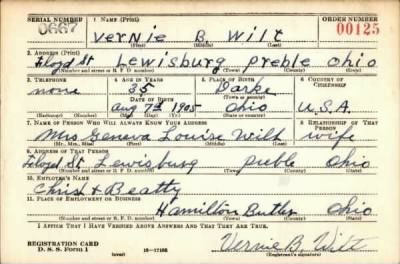 SERIAL NUMBER 1. NAME (Print) ORDER NUMBER
0667 Vernie B. Wilt 00125
(First) (Middle) (Last)
2. ADDRESS (Print)
Floyd St Lewisburg Preble Ohio
(Number and street or R. F. D. number) (Town) (County) (State)
3. TELEPHONE 4. AGE IN YEARS 5. PLACE OF BIRTH 6. COUNTRY OF CITIZENSHIP
none 35 Darke
DATE OF BIRTH (Town or county)
Aug 7th 1905 Ohio U.S.A.
(Mo.) (Day) (Yr.) (State or country)
7. NAME OF PERSON WHO WILL ALWAYS KNOW YOUR ADDRESS 8. RELATIONSHIP OF THAT PERSON
Mrs Geneva Louise Wilt wife
(Mr., Mrs., Miss) (First) (Middle) (Last)
9. ADDRESS OF THAT PERSON
Floyd St. Lewisburg Preble Ohio
(Number and street or R. F. D. number) (Town) (County) (State)
10. EMPLOYER'S NAME
Chris & Beatty
11. PLACE OF EMPLOYMENT OR BUSINESS
Hamilton Butler Ohio
(Number and street or R. F. D. number) (Town) (County) (State)
I AFFIRM THAT I HAVE VERIFIED ABOVE ANSWERS AND THAT THEY ARE TRUE.
REGISTRATION CARD
D. S. S. Form 1 (over) Vernie B. Wilt
(Registrant's signature)